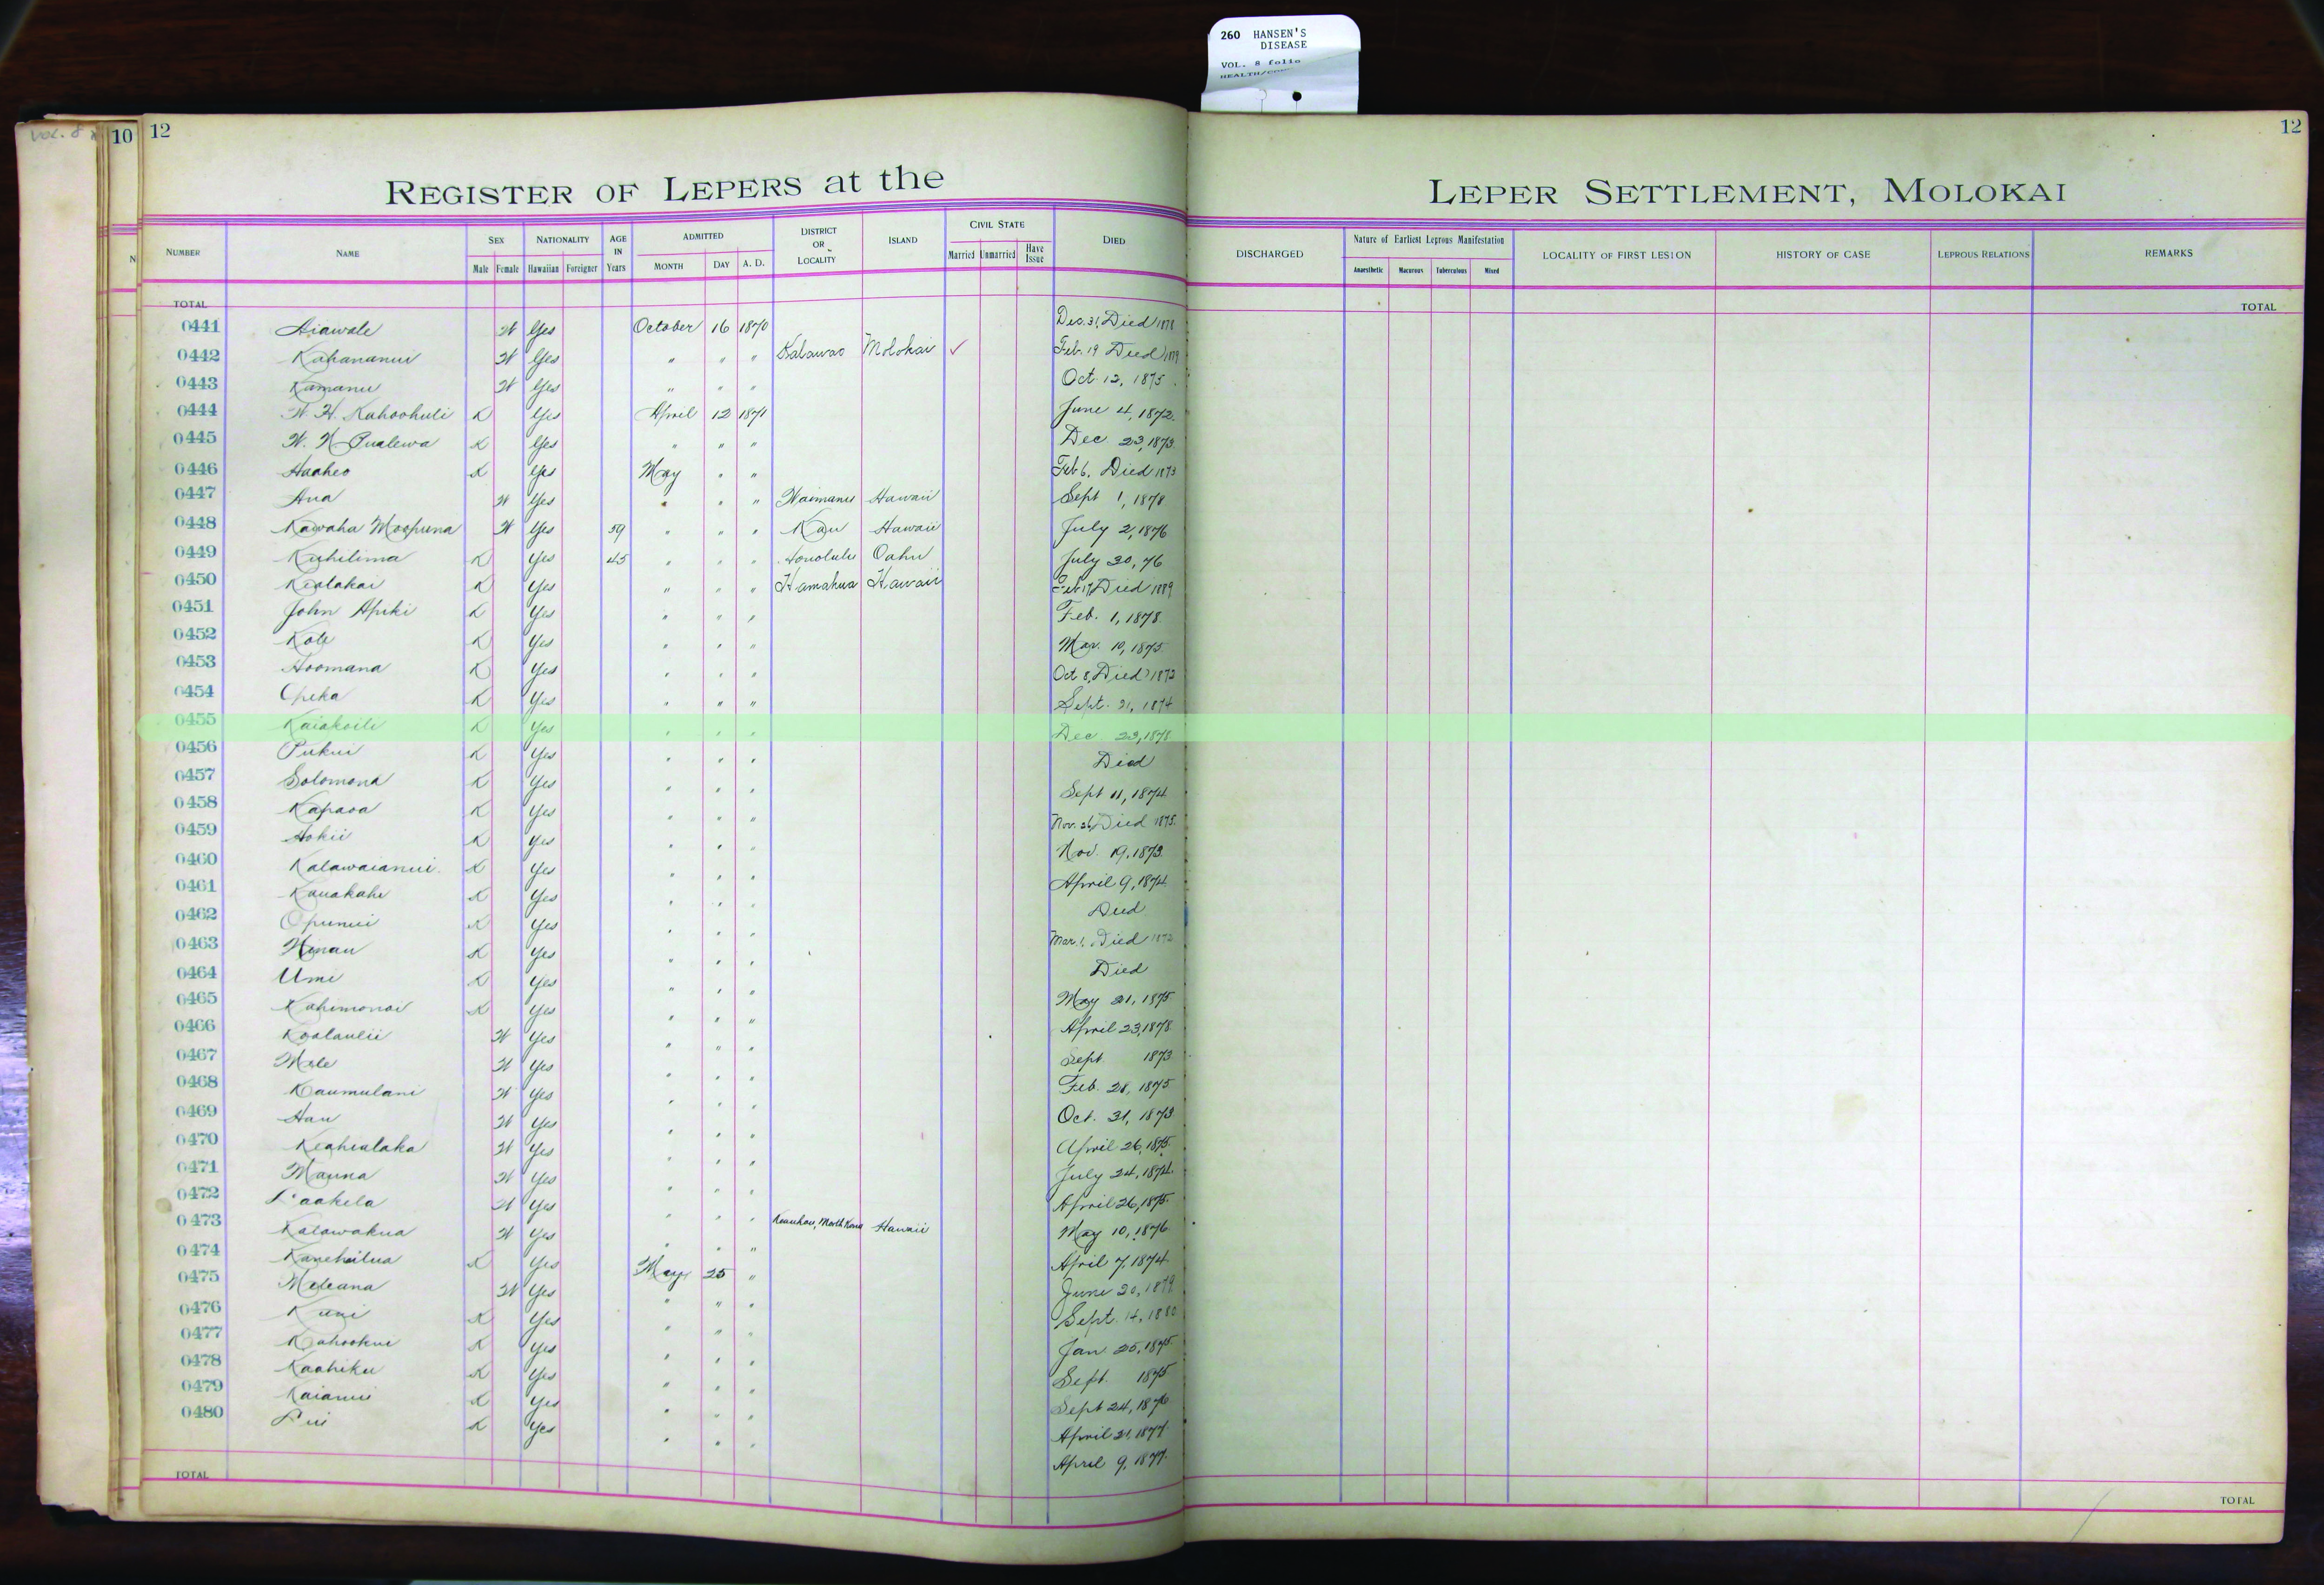 260 HANSEN'S
DISEASE
VOL. 8 folio
10
12
12
REGISTER OF LEPERS at the LEPER SETTLEMENT, MOLOKAI
NUMBER NAME SEX NATIONALITY AGE IN Years ADMITTED DISTRICT OR LOCALITY ISLAND CIVIL STATE DIED DISCHARGED Nature of Earliest Leprous Manifestation LOCALITY OF FIRST LESION HISTORY OF CASE LEPROUS RELATIONS REMARKS
Male Female Hawaiian Foreigner MONTH DAY A. D. Married Unmarried Have Issue Anaesthetic Macurous Tuberculous Mixed
TOTAL TOTAL
0441 Aiawale W Yes October 16 1870 Dec. 31, Died 1878
0442 Kahananui W Yes " " " Kalawao Molokai ✓ Feb. 19 Died
0443 Kamanu W Yes " " " Oct. 12, 1875
0444 W. H. Kahoohuli K Yes April 12 1871 June 4, 1872
0445 W. N. Pualewa K Yes " " " Dec 23, 1873
0446 Haaheo K Yes May " " Feb 6, Died 1873
0447 Ana W Yes " " " Waimanu Hawaii Sept 1, 1878
0448 Kawaha Moopuna W Yes 59 " " " Kau Hawaii July 2, 1876
0449 Kuhilima K Yes 45 " " " Honolulu Oahu July 30, 76
0450 Kealakai K Yes " " " Hamakua Hawaii Feb 17, Died 1889
0451 John Apiki K Yes " " " Feb. 1, 1878
0452 Kole K Yes " " " Mar. 10, 1875
0453 Hoomana K Yes " " " Oct 8, Died 1873
0454 Opeka K Yes " " " Sept. 21, 1874
0455 Kaiakoili K Yes " " " Dec 23, 1878
0456 Pukui K Yes " " " Died
0457 Solomona K Yes " " " Sept 11, 1874
0458 Kapaoa K Yes " " " Nov. 26, Died 1875
0459 Hokii K Yes " " " Nov. 19, 1873
0460 Kalawaianui K Yes " " " April 9, 1874
0461 Kauakahi K Yes " " " Died
0462 Opunui K Yes " " " Mar. 1, Died 1873
0463 Hinau K Yes " " " Died
0464 Umi K Yes " " " May 21, 1875
0465 Kahimonoi K Yes " " " April 23, 1878
0466 Koolaulii W Yes " " " Sept 1873
0467 Mele W Yes " " " Feb. 28, 1875
0468 Kaumulani W Yes " " " Oct. 31, 1873
0469 Hau W Yes " " " April 26, 1875
0470 Keahialaka W Yes " " " July 24, 1874
0471 Mauna W Yes " " " April 26, 1875
0472 Laakela W Yes " " "
0473 Kalawakua W Yes " " " Keauhou, North Kona Hawaii May 10, 1876
0474 Kanehailua K Yes May 25 " April 7, 1874
0475 Meleana W Yes " " " June 20, 1879
0476 Kuni K Yes " " " Sept. 14, 1880
0477 Kahookui K Yes " " " Jan 25, 1875
0478 Kaahiku K Yes " " " Sept. 1875
0479 Kaianui K Yes " " " Sept 24, 1876
0480 Lui K Yes " " " April 21, 1877
April 9, 1877
TOTAL TOTAL